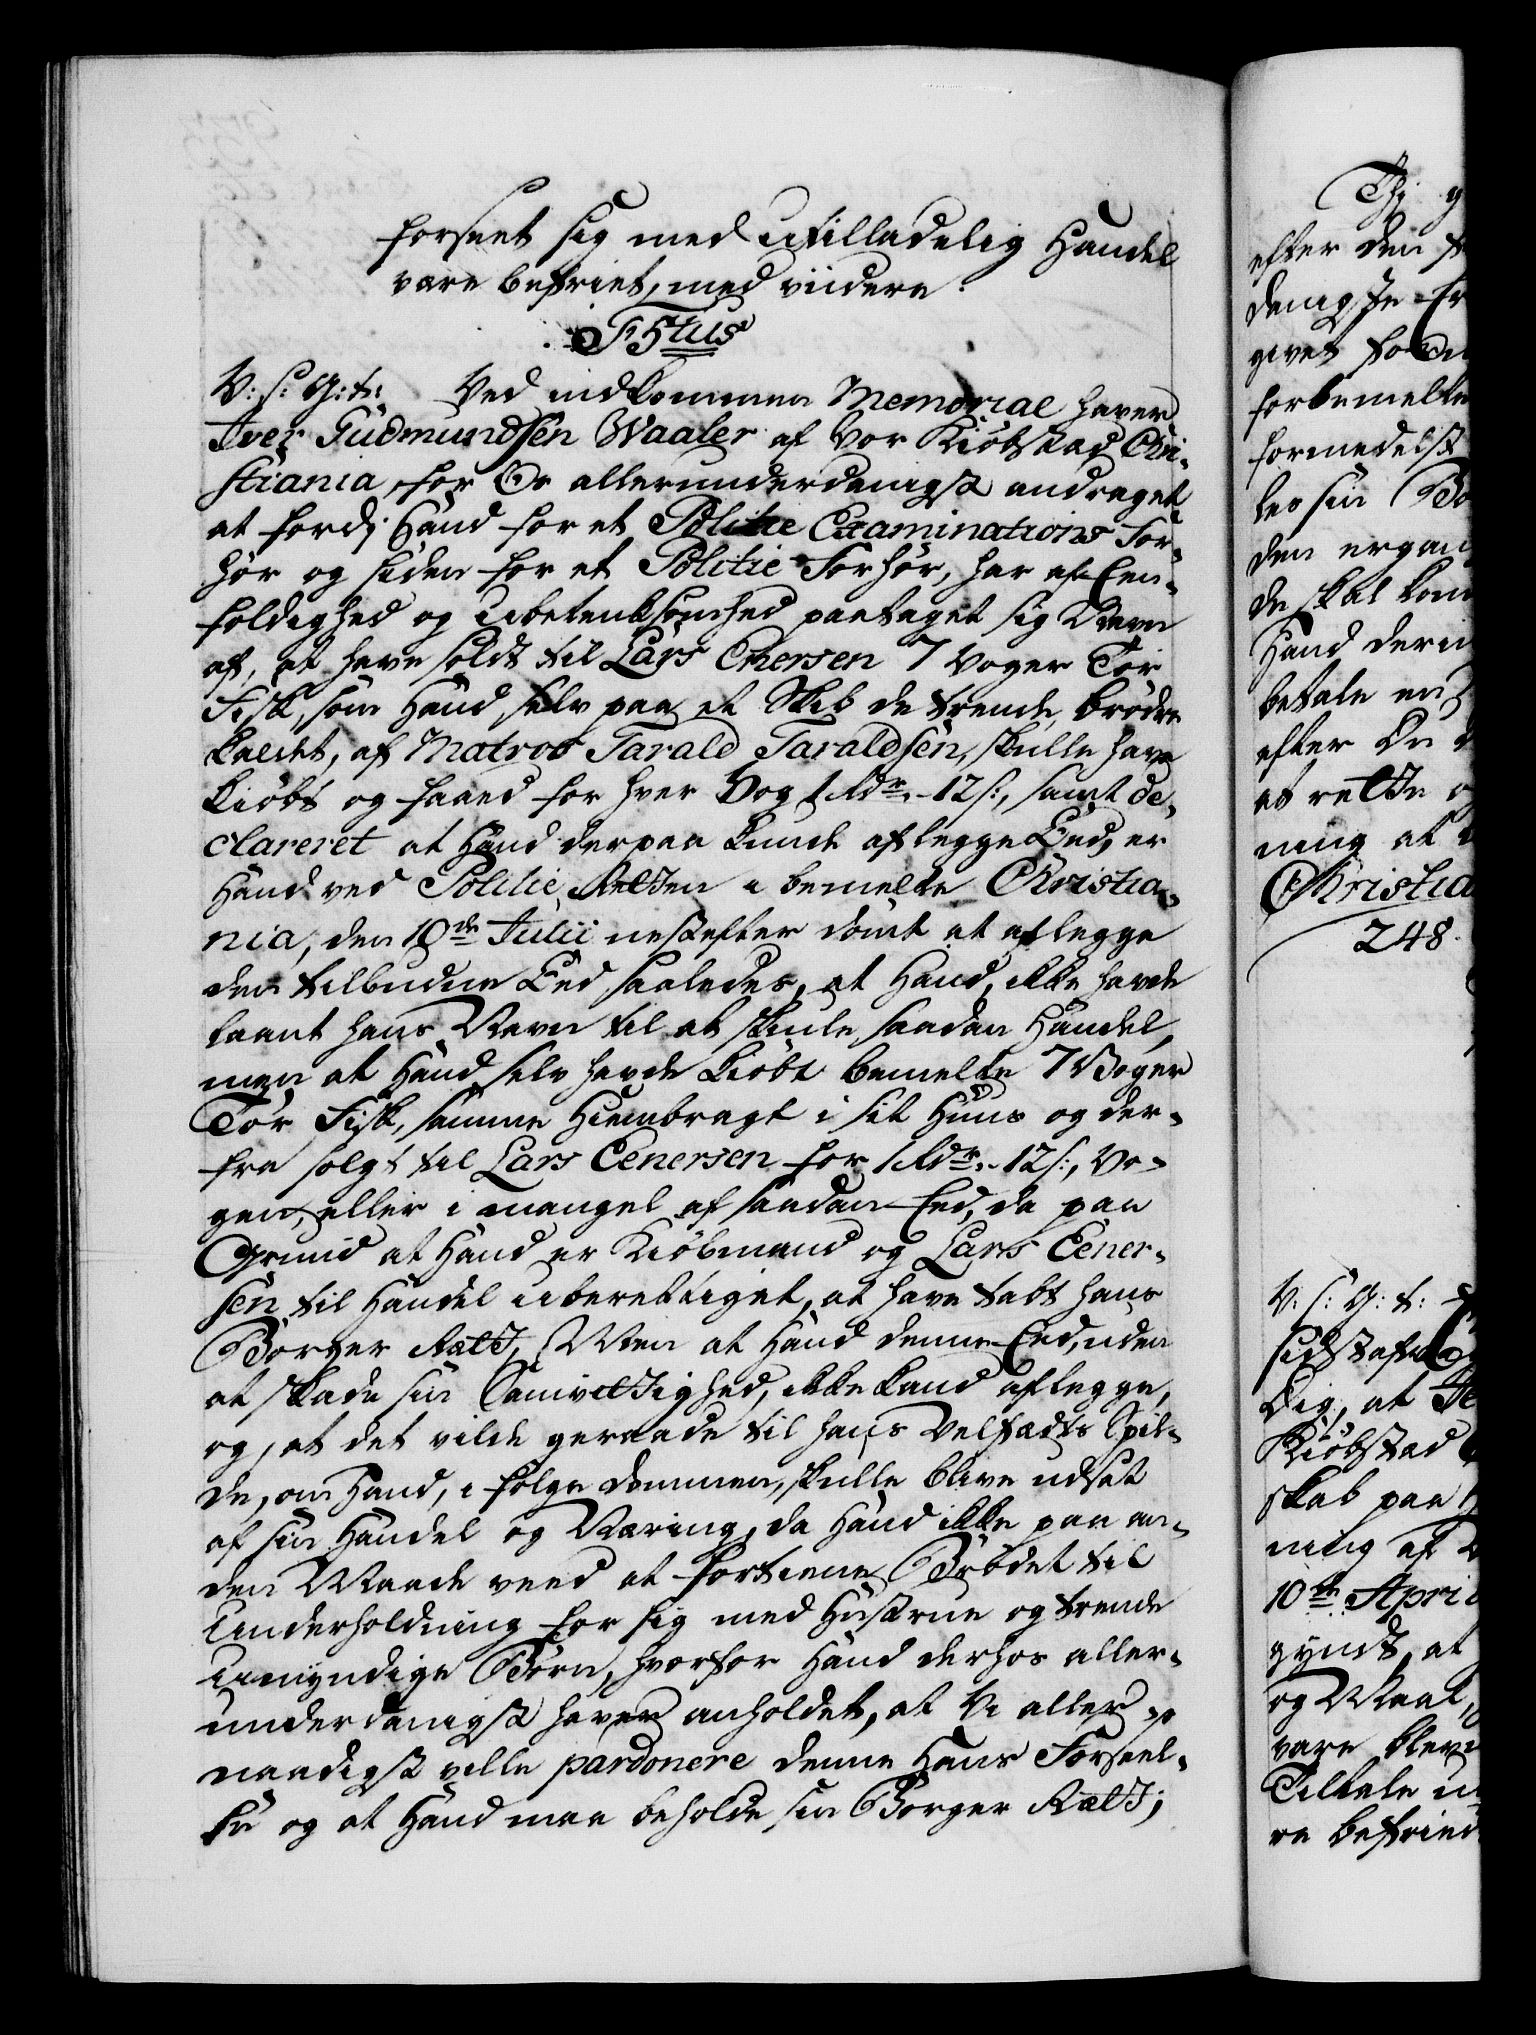 forseet sig med utilladelig Handel
være befriet, med viidere.
F 5tus
V: S: G: t: Ved indkommen Memorial haver
Iver Gudmundsen Waaler af Vor Kiøbstad Chri-
stiania, for Os allerunderdanigst andraget,
at fordj Hand for et Politie Examinations For-
hør og siden for et Politie Forhør, har af Een-
foldighed og Ubetenksomhed paataget sig Navn
af, at have soldt til Lars Enersen 7 Voger Tør
Fisk, som Hand selv paa et Skib de trende brødre
kaldet, af Matros Tarald Taraldsen, skulle have
kiøbt og faaed for hver Vog 1 Rdr. 12 s:, samt de-
clareret at Hand derpaa kunde aflegge Eed, er
Hand ved Politie Retten i bemelte Christia-
nia, den 18de Julii nestefter dømt at aflegge
den tilbudne Eed saaledes, at Hand ikke havde
laant hans Navn til at skiule saadan Handel,
men at Hand selv havde kiøbt bemelte 7 Voger
Tør Fisk, samme hiembragt i sit Huus og der-
fra solgt til Lars Eenersen for 1 Rdr. 12 s:, Vo-
gen, eller i mangel af saadan Eed, da paa
Grund at Hand er Kiøbmand og Lars Eener-
sen til Handel uberettiget, at have tabt hans
Borger Rætt, Men at Hand denne Eed, uden
at skade sin Samvittighed, ikke kand aflegge,
og, at det vilde geraade til hans Velfærds Spil-
de, om Hand, i følge Dommen, skulle blive udsat
af sin Handel og Næring, da Hand ikke paa an-
den Maade veed at fortiene Brødet til
Underholdning for sig med Hustrue og trende
umyndige Børn, hvorfor Hand derhos aller-
underdanigst haver anholdet, at Vi aller-
naadigst ville pardonere denne Hans Forseel-
se og at Hand maa beholde sin Borger Rætt;
Thj g
efter den
denigste
givet
forbemelte
formedelst
les sin Bo
den ergan
de skal kom
Hand deri
betale en
efter De
at rette o
ning at
Christia
248.
V: S: G: t:
sidst afvi
Dig, at
Kiøbstad
skab paa
ning af
10de April
gyndt, at
og Maal,
være blev
Tiltale u
re befried